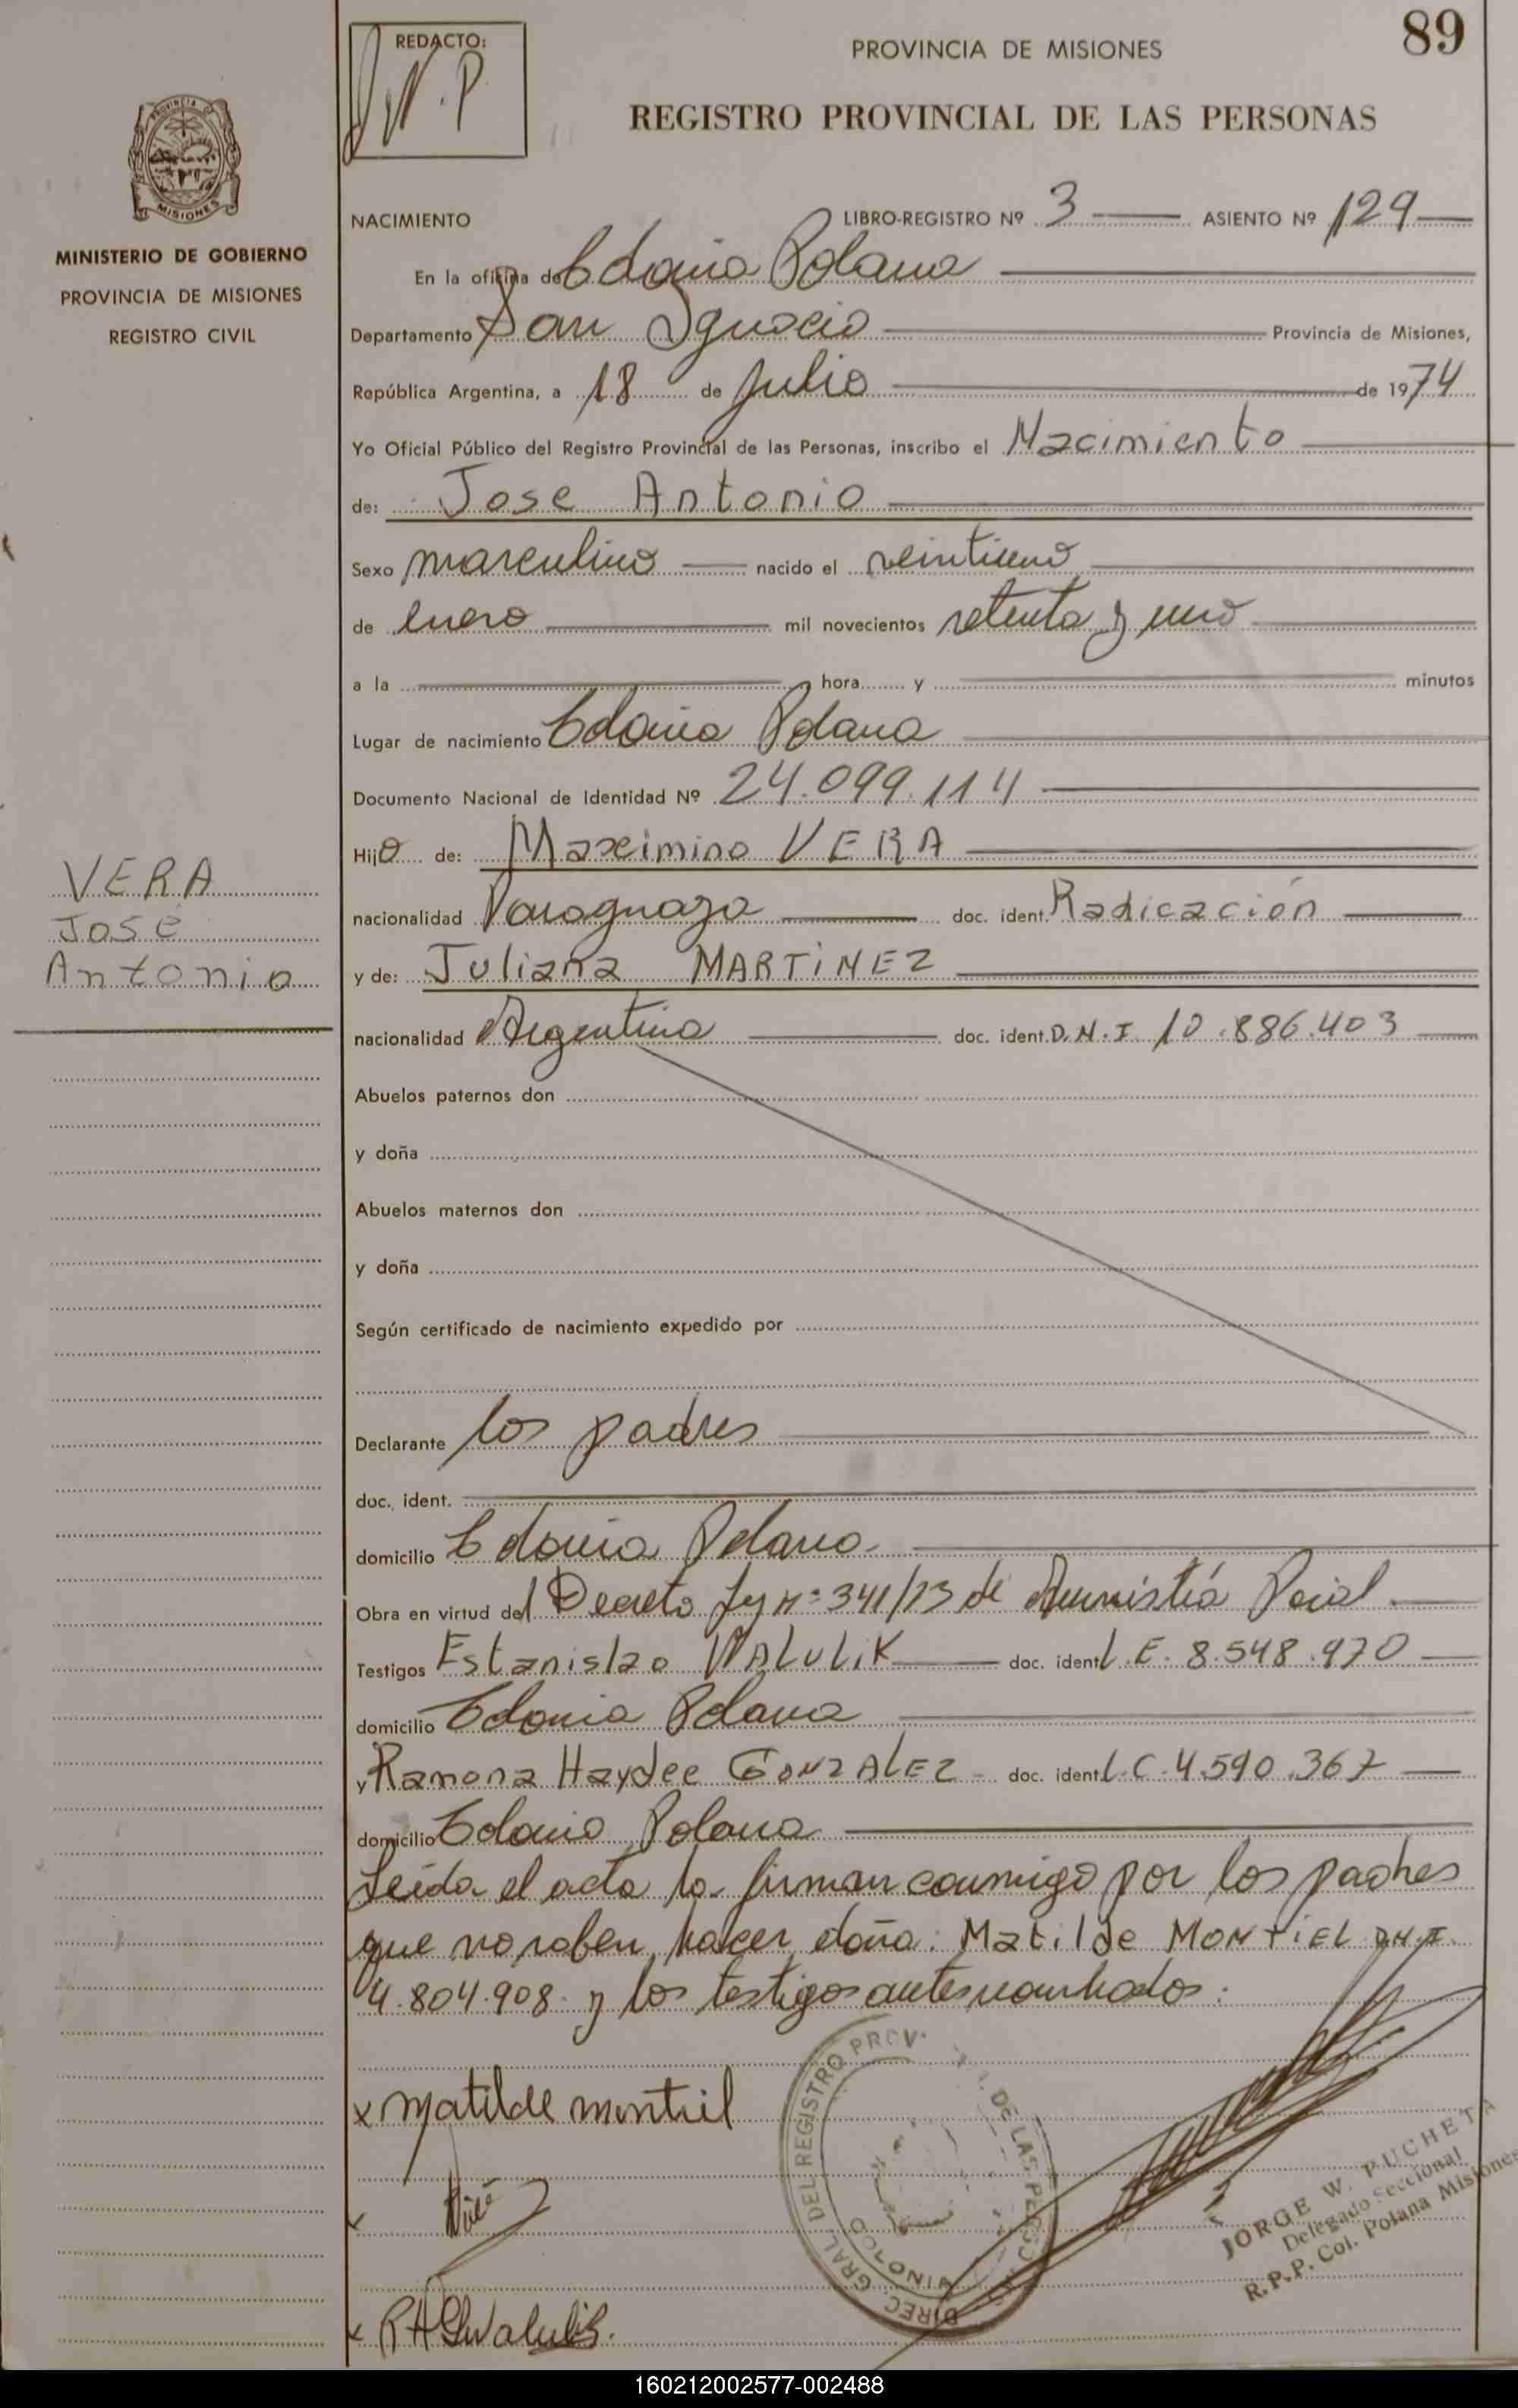 REDACTO:
J.W.P.
PROVINCIA DE MISIONES
89
REGISTRO PROVINCIAL DE LAS PERSONAS
MISIONES
MINISTERIO DE GOBIERNO
PROVINCIA DE MISIONES
REGISTRO CIVIL
NACIMIENTO LIBRO-REGISTRO Nº 3 ASIENTO Nº 129
En la oficina de Colonia Polana
Departamento San Ignacio Provincia de Misiones,
República Argentina, a 18 de Julio de 1974
Yo Oficial Público del Registro Provincial de las Personas, inscribo el Nacimiento
de: Jose Antonio
Sexo masculino nacido el veintiuno
de enero mil novecientos setenta y uno
a la hora y minutos
Lugar de nacimiento Colonia Polana
Documento Nacional de Identidad Nº 24.099.114
Hijo de: Maximino VERA
VERA
José
Antonio
nacionalidad Paraguaya doc. ident. Radicación
y de: Juliana MARTINEZ
nacionalidad Argentina doc. ident. D.N.I. 10.886.403
Abuelos paternos don
y doña
Abuelos maternos don
y doña
Según certificado de nacimiento expedido por
Declarante los padres
doc. ident.
domicilio Colonia Polana.
Obra en virtud del Decreto Ley Nº 341/73 de Amnistía
Testigos Estanislao WALULIK doc. ident L.E. 8.548.970
domicilio Colonia Polana
y Ramona Haydee GONZALEZ doc. ident L.C. 4.590.367
domicilio Colonia Polana
Leida el acta la firman conmigo por los padres
que no saben hacer doña: Matilde MONTIEL D.N.I.
4.804.908 y los testigos antes nombrados:
x Matilde montiel
x
x
DIREC. GRAL. DEL REGISTRO PROV. DE LAS PERSONAS
COLONIA
JORGE W. PUCHETA
Delegado Seccional
R.P.P. Col. Polana Misiones
160212002577-002488